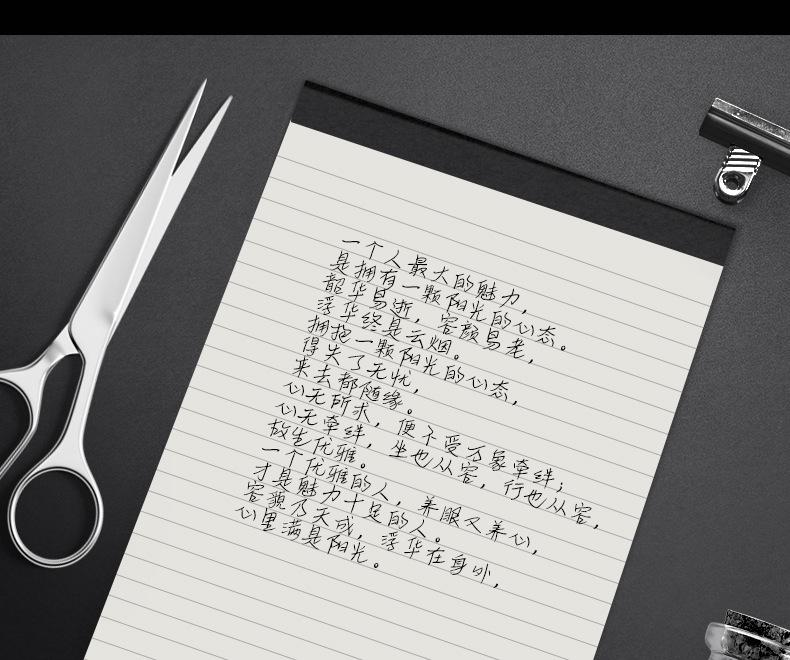 一个人最大的魅力，
是拥有一颗阳光的心态。
韶华易逝，容颜易老，
浮华终是云烟。
拥抱一颗阳光的心态，
得失了无忧，
来去都随缘。
心无所求，便不受万象牵绊；
心无牵绊，坐也从容，行也从容，
故生优雅。
一个优雅的人，养眼又养心，
才是魅力十足的人。
容貌乃天成，浮华在身外，
心里满是阳光。